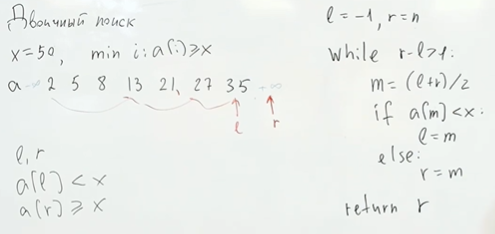 Двоичный поиск
x=50, min i: a[i]⩾x
a -∞ 2 5 8 13 21, 27 35 +∞
l r
l, r
a[l] < x
a[r] ⩾ x
l=-1, r=n
while r-l>1:
m=(l+r)/2
if a[m]<x:
l=m
else:
r=m
return r